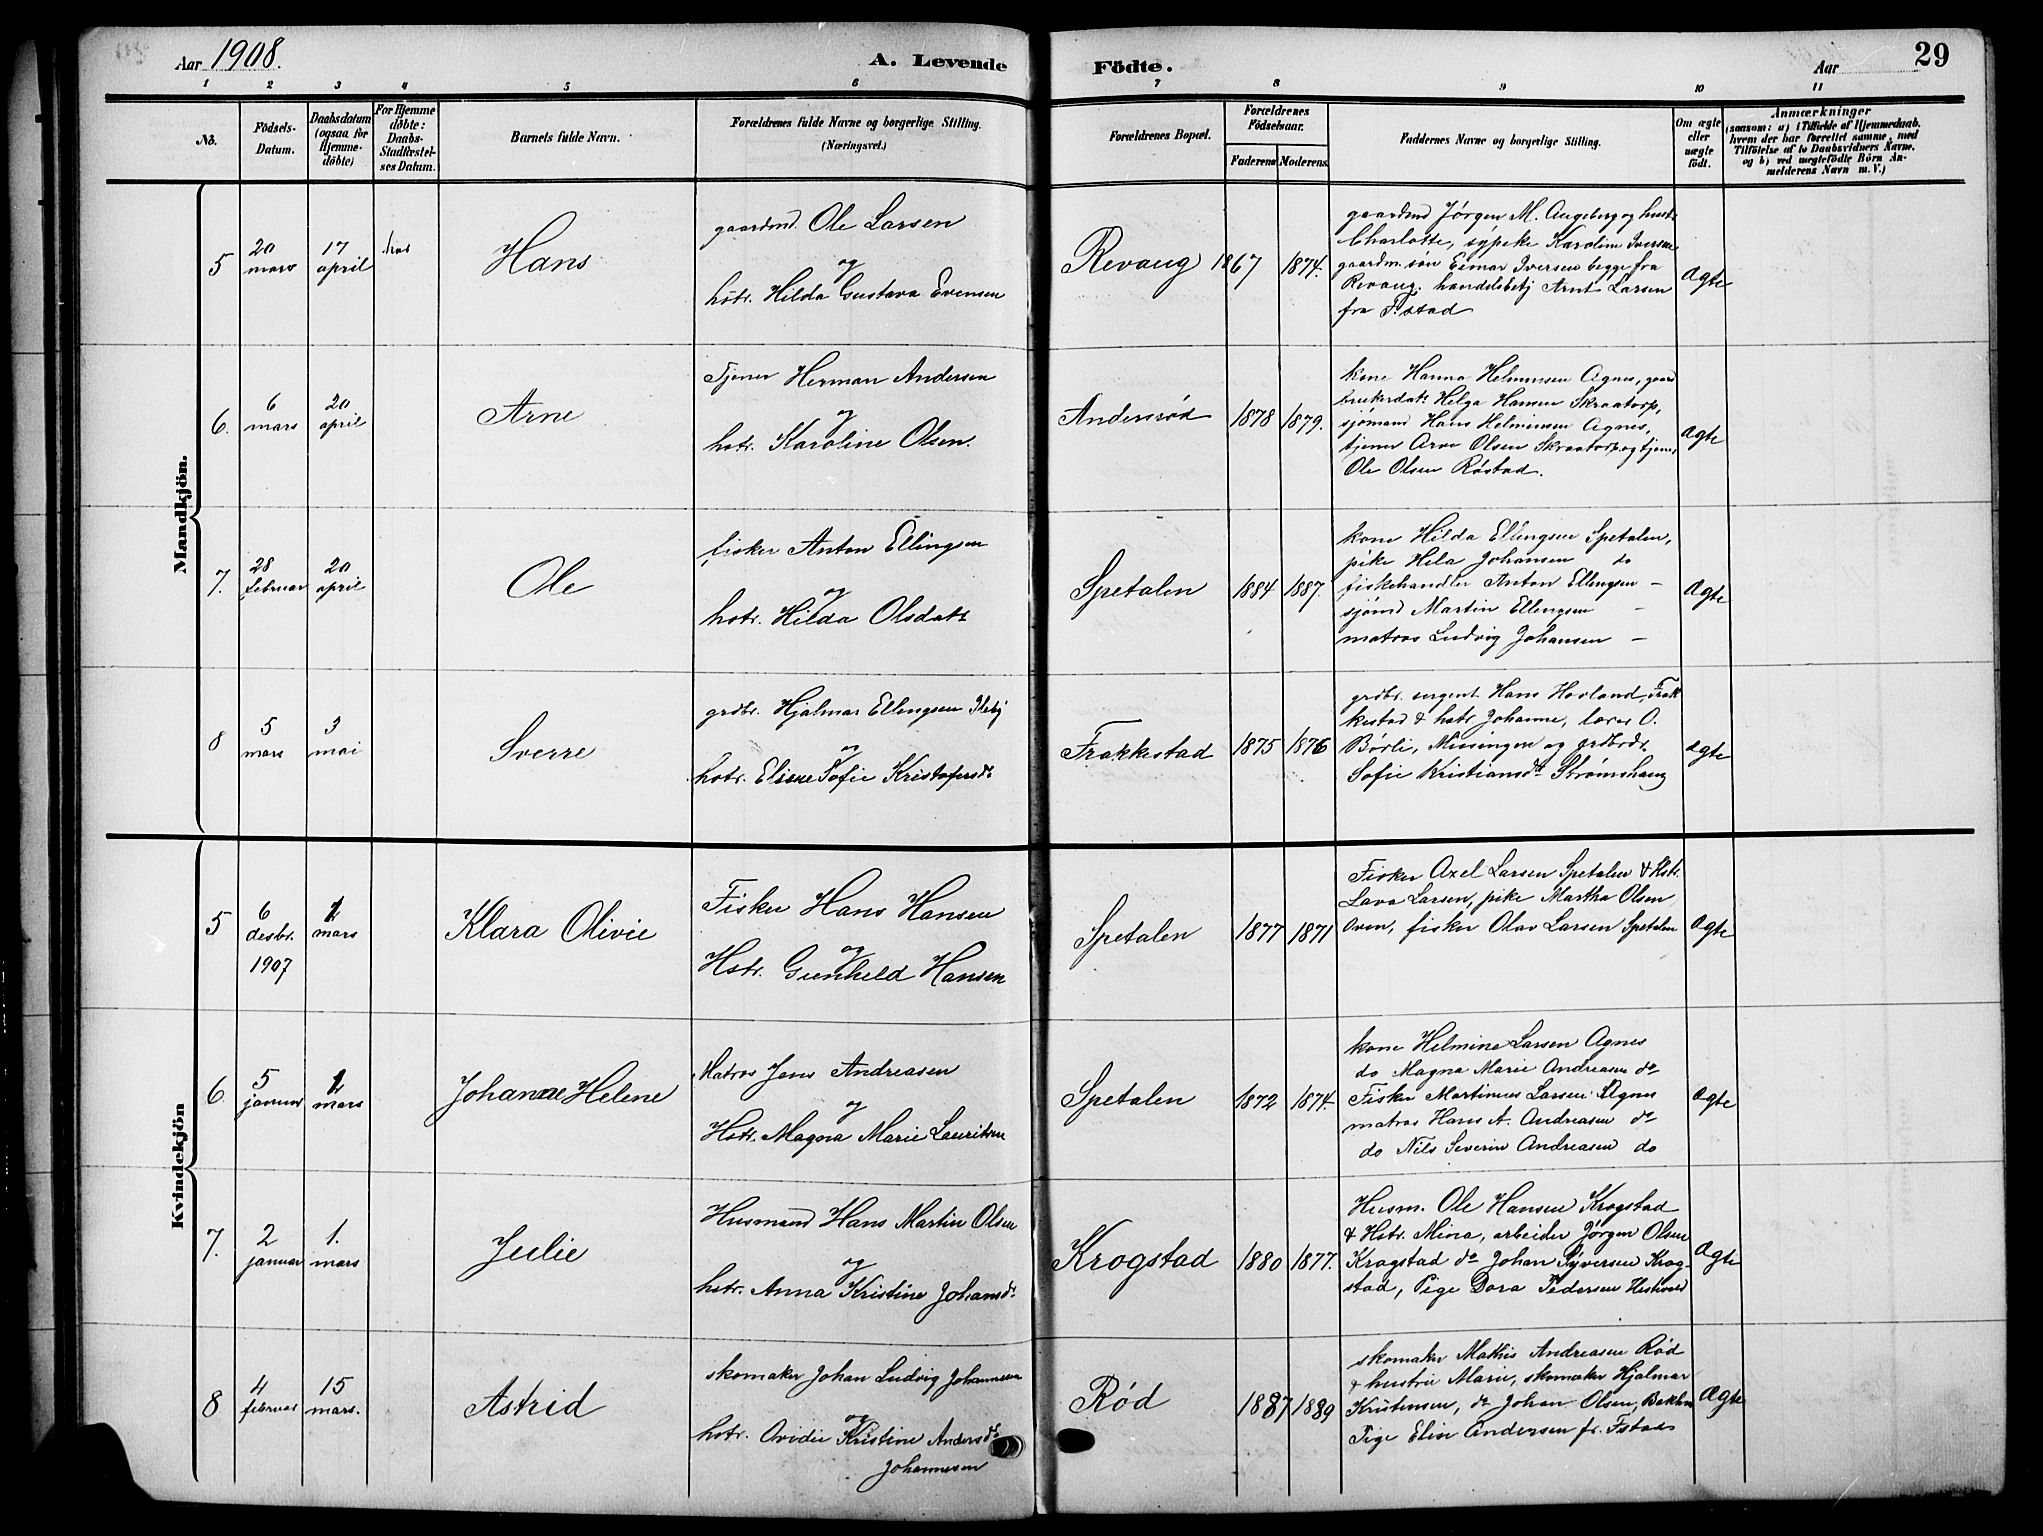 Aar 1908.
A. Levende Födte.
Aar
29
1 2 3 4 5 6 7 8 9 10 11
No.
Födsels-Datum.
Daabsdatum (ogsaa for Hjemme-döbte)
For Hjemme döbte: Daabs-Stadfæstel-ses Datum.
Barnets fulde Navn.
Forældrenes fulde Navne og borgerlige Stilling. (Næringsvei.)
Forældrenes Bopæl.
Forældrenes Födselsaar.
Faderens
Moderens.
Faddernes Navne og borgerlige Stilling.
Om ægte eller uægte födt.
Anmærkninger (saasom: a) i Tilfælde af Hjemmedaab, hvem der har forrettet samme, med Tilföielse af to Daabsvidners Navne, og b) ved uægtefödte Börn An-melderens Navn m. V.)
Mandkjön.
5
20 mars
17 april
Hans
gaardmd. Ole Larsen
og
hstr. Hilda Gustava Evensen
Revaug
1867
1874.
gaardmd Jørgen M. Augeberg og hustr
Charlotte, sypike Karoline Iversen
gaardm. søn Einar Iversen begge fra
Revaug. handelsbetj Arnt Larsen
fra F.stad
ægte
6.
6 mars
20 april
Arne
Tjener Herman Andersen
og
hstr. Karoline Olsen.
Andersrød
1878
1879.
kone Hanna Helminsen Agnes, gaard
brukerdatr Helga Hansen Skraatorp,
sjømand Hans Helminsen Agnes,
tjener Arve Olsen Skraatorp og tjener
Ole Olsen Røstad.
ægte
7.
28 februar
20 april
Ole
fisker Anton Ellingsen
og
hstr. Hilda Olsdatr
Spetalen
1884
1887.
kone Hilda Ellingsen Spetalen,
pike Hila Johansen do
fiskehandler Anton Ellingsen —
sjømd Martin Ellingsen —
matros Ludvig Johansen —
ægte
8
5 mars
3 mai
Sverre
grdbr. Hjalmar Ellingsen
og
hstr. Elisne Sofie Kristofersdr
Frakkestad
1875
1876
grdbr. sergent Hans Hovland, Frak
kestad & hstr Johanne, lærer O.
Børli, Missingen og
Sofie Kristiansdtr Strømshaug
ægte
Kvindekjön
5
6 desbr. 1907
1 mars
Klara Olivie
Fisker Hans Hansen
og
Hstr. Gunhild Hansen
Spetalen
1877
1871
Fisker Axel Larsen Spetalen & Hstr.
Lava Larsen, pike Martha Olsen
Oven, fisker Olav Larsen Spetalen
ægte
6
5 januar
1 mars
Johanne Helene
Matros Jens Andreasen
og
Hstr. Magna Marie Lauritsen
Spetalen
1872
1874.
kone Helmine Larsen Agnes
do Magna Marie Andreasen do
Fisker Martinius Larsen Agnes
matros Hans A. Andreasen do
do Nils Severin Andreasen do
ægte
7.
2 januar
1. mars
Julie
Husmand Hans Martin Olsen
og
hstr. Anna Kristine Johansdr
Krogstad
1880
1877.
Husm. Ole Hansen Krogstad
& Hstr. Mina, arbeider Jørgen Olsen
Krogstad do Johan Syversen Krog-
stad, Pige Dora Pedersen
Ægte
8
4 februar
15 mars.
Astrid
skomaker Johan Ludvig Johannesen
og
hstr. Ovidie Kristine Andersdr
Johannesen
Rød
1887
1889
skomaker Mathis Andreasen Rød
& hustru Marie, skomaker Hjalmar
Kristensen, do Johan Olsen,
Pige Elise Andersen fr. Fstad
ægte